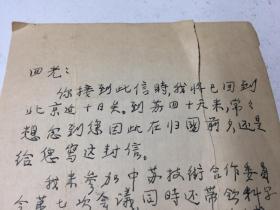 四老：
你接到此信時，我將已回到
北京近十日矣。到苏四十元来，常々
想念到您因此在归国前夕，还是
给您写这封信。
我来参加中苏技術合作委員
会第七次会议，同時还带飲料